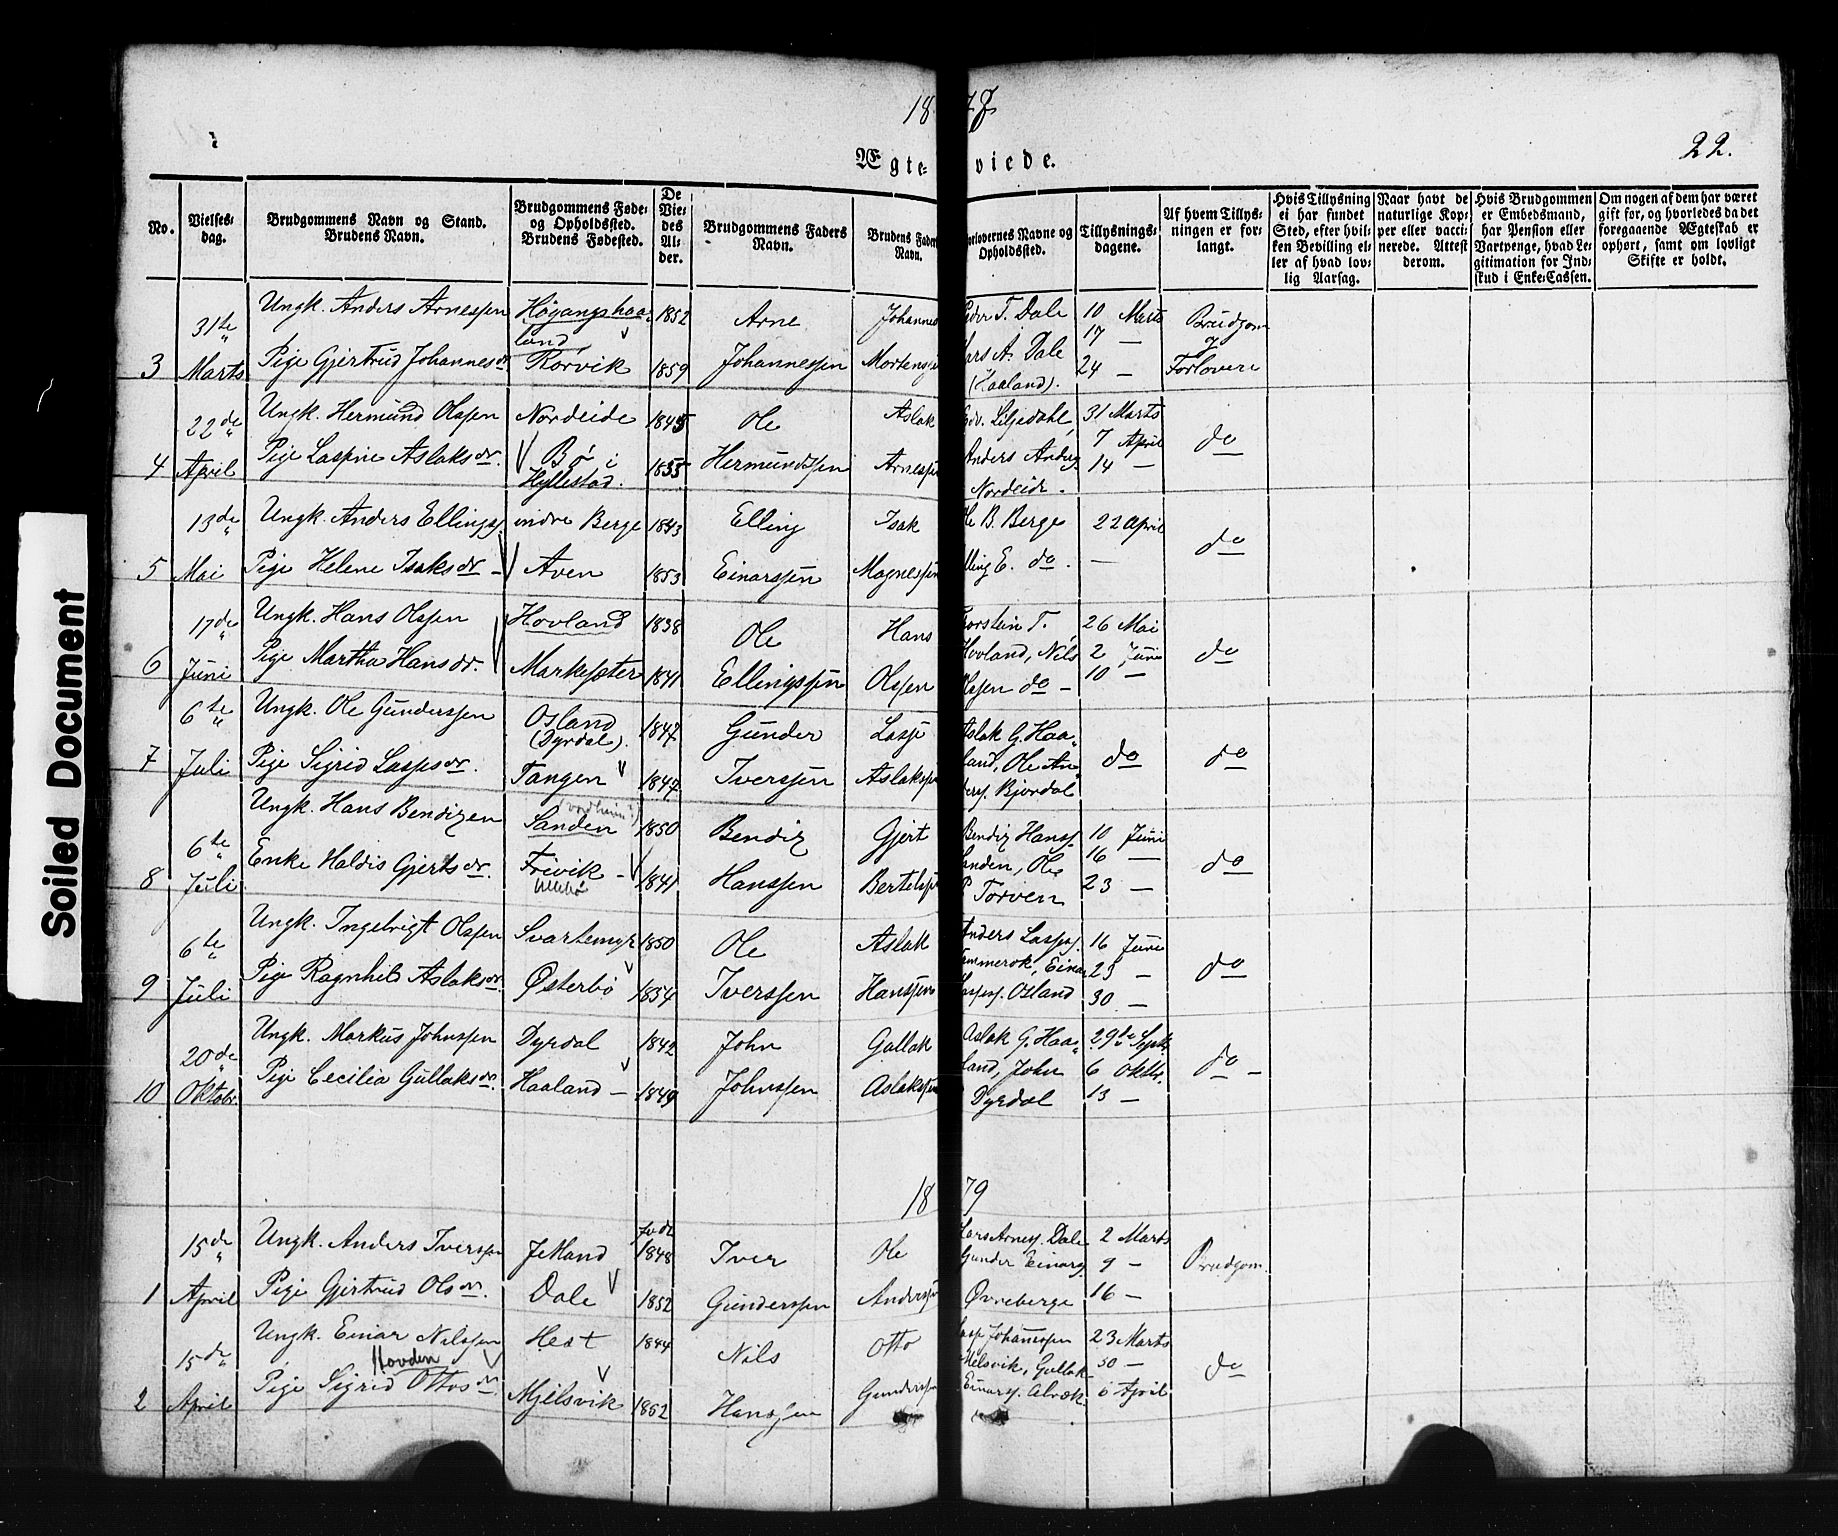 18 77
22.
Ægte- viede.
No.
Vielses-
dag.
Brudgommens Navn og Stand.
Brudens Navn.
Brudgommens Føde-
og Opholdssted.
Brudens Fødested.
De
Vie-
des
Al-
der.
Brudgommens Faders
Navn.
Brudens Fader
Navn.
orlovernes Navne og
Opholdssted.
Tillysnings-
dagene.
Af hvem Tillys-
ningen er for-
langt.
Hvis Tillysning
ei har fundet
Sted, efter hvil-
ken Bevilling el-
ler af hvad lov-
lig Aarsag.
Naar havt de
naturlige Kop-
per eller vacci-
nerede. Attest
derom.
Hvis Brudgommen
er Embedsmand,
har Pension eller
Vartpenge, hvad Le-
gitimation for Ind-
skud i Enke-Cassen.
Om nogen af dem har været
gift før, og hvorledes da det
foregaaende Ægteskab er
ophørt, samt om lovligt
Skifte er holdt.
3
31te
Marts
Ungk. Anders Arnessen
Pige Gjertrud Johannesdr.
Høgangshaa-
land
Rørvik
1852
1859
Arne
Johannessen
Johannes
Mortenssen
T. Dale
A. Dale
(Haaland).
10 Marts
17 —
24 —
Brudgom
Forlovere
4
22de
April
Ungk. Hermund Olssen
Pige Laspine Aslaksdr.
Nordeide
Bø i
Hyllestad.
1845
1855
Ole
Hermundssen
Aslak
Arnessen
Edv. Liljedahl,
Anders Anders
Nordeide.
31 Marts
7 April
14 —
do
5
13de
Mai
Ungk. Anders Ellings.
Pige Helene Isaksdr —
indre Berge
Aven
1843
1853
Elling
Einarssen
Isak
Magnessen
B. Berge
lling E. do.
22 April
—
do
6
17de
Juni
Ungk. Hans Olssen
Pige Martha Hansdr.
Hovland
Markesæter
1838
1841
Ole
Ellingssen
Hans
Olssen
Torstein T.
Hovland, Nils
Olssen do —
26 Mai
2 Juni
10 —
do
7
6te
Juli
Ungk. Ole Gunderssen
Pige Sigrid Laspsdr.
Osland
(Dyrdal).
Tangen
1847
1847
Gunder
Iverssen
Lasse
Aslakssen
Aslak G. Haa-
land, Ole An-
ders. Bjordal
do
do
8
6te
Juli
Ungk. Hans Bendixen
Enke Haldis Gjertsdr.
Sanden
Frivik —
1850
1841
Bendix
Hanssen
Gjert
Bertelssen
Bendix Hanss.
anden, Ole
P Torven
10 Juni
16 —
23 —
do
9
6te
Juli
Ungk. Ingebrigt Olssen
Pige Ragnhild Aslaksdr.
Svartemyr
Østerbø
1850
1854
Ole
Iverssen
Aslak
Hanssen
Anders Lasses.
ammersk, Einar
Lasses. Osland
16 Juni
23 —
30 —
do
10
20de
Oktobr
Ungk. Markus Johnssen
Pige Cecilia Gullaksdr.
Dyrdal
Haaland —
1842
1849
John
Johnssen
Gullak
Aslakssen
Aslak G. Haa-
land, John
Dyrdal
29de Septbr.
6 Oktbr.
13 —
do —
18 79
1
15de
April
Ungk. Anders Iverssen
Pige Gjertrud Olsdr.
Jetland
Dale
født
1848
1852
Iver
Gunderssen
Ole
Anderssen
Lars Arnes. Dale
Gunder Einars.
Øvreberge
2 Marts
9 —
16 —
Brudgom.
2
15de
April
Ungk. Einar Nilssen
Hovden
Pige Sigrid Ottosdr
Hest
Mjelsvik
1844
1852
Nils
Hanssen
Otto
Gunderssen
Lasse Johanessen
Mjelsvik, Gullak
Einars. Alvæk
23 Marts
30 —
6 April
do
Soiled Document